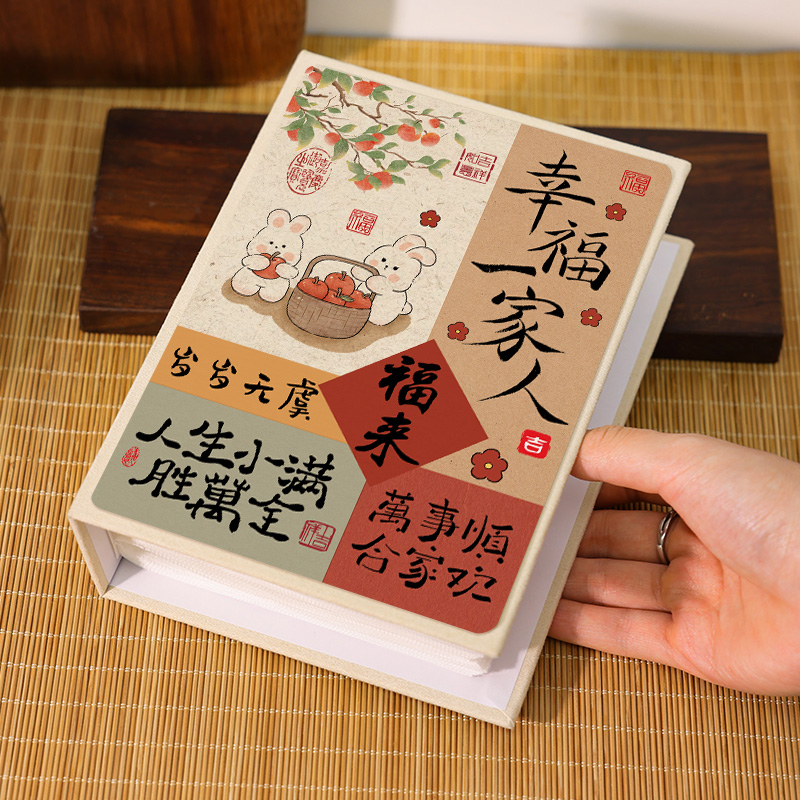 吉祥
福
福
幸福
一家人
吉
岁岁无虞
福来
人生小满
胜萬全
萬事順
合家欢